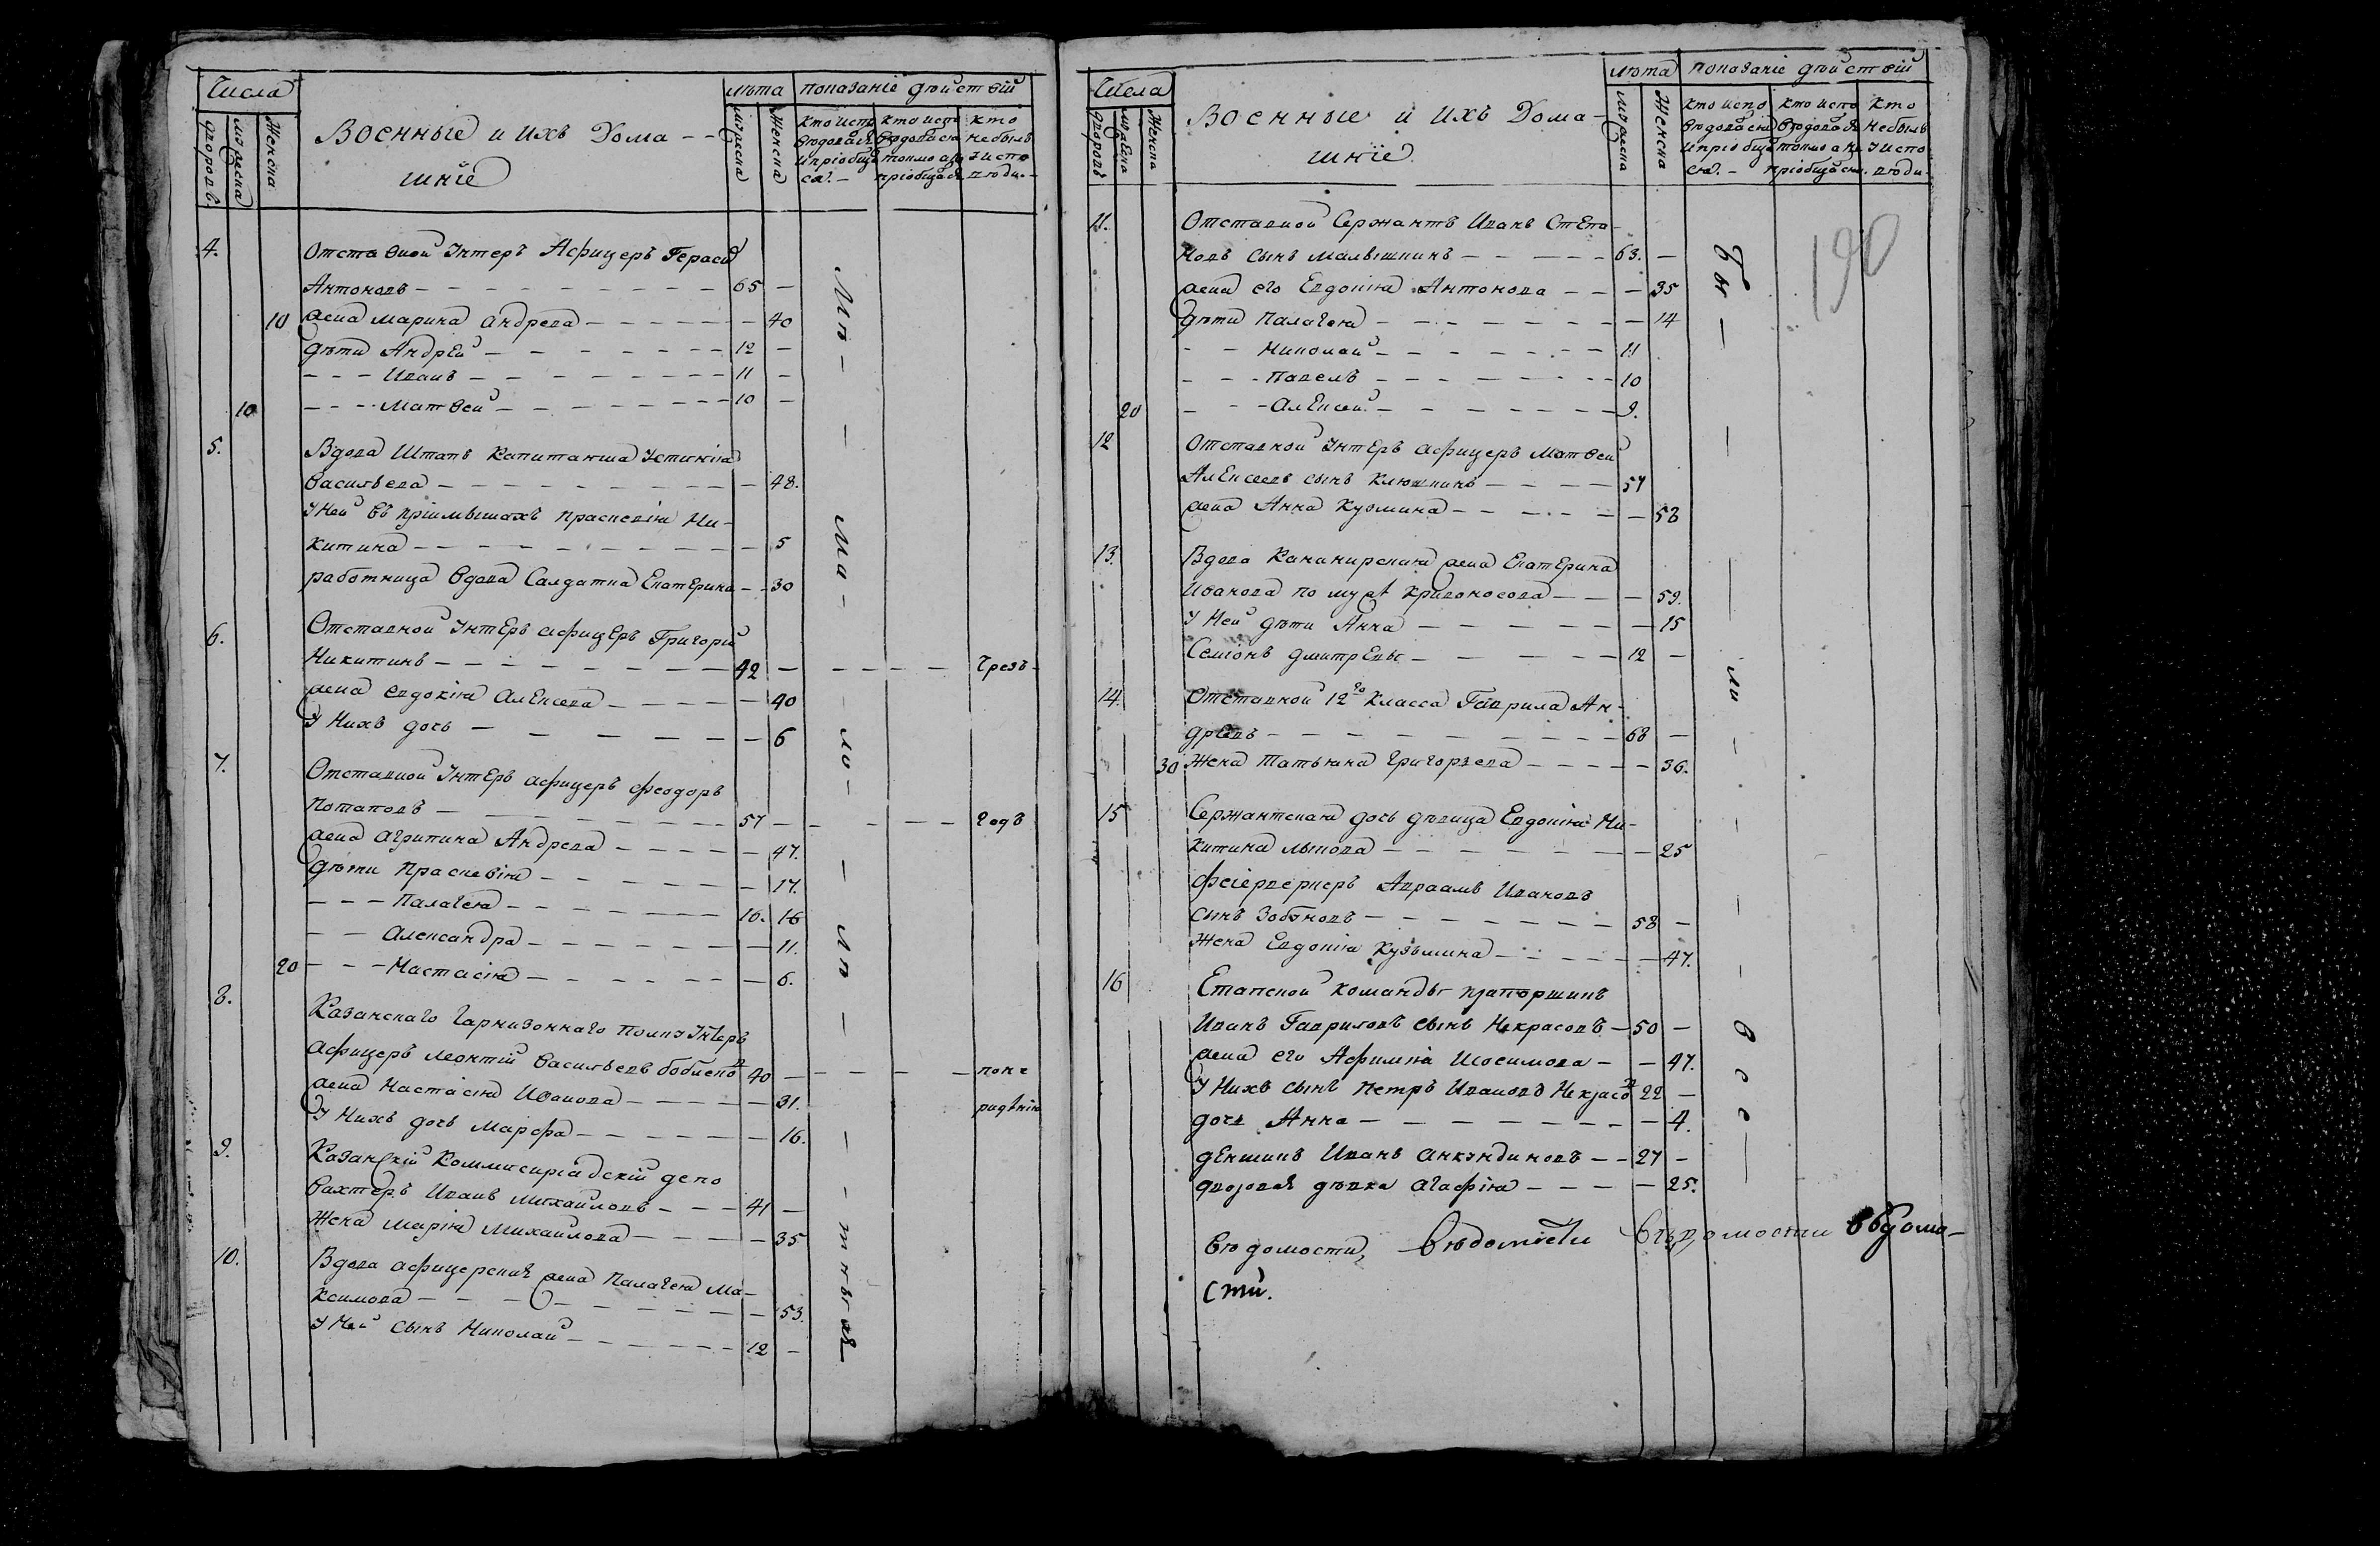 Числа
Военные и ихъ Дома-
шніе
лѣта
показаніе дѣйствій
дворовъ
мужеска
женска
мужеска
женска
кто испо
вѣдовался
и пріобщ
ся. -
кто испо
вѣдовался
токмо а не
пріобщался
кто
не былъ
у испо
вѣди. -
4.
Отставной Унтеръ Афицеръ Гераси
Антоновъ - 65 -
10 жена Марина Андреева - 40
дѣти Андрей - 12 -
- - - Иванъ - 11 -
10 - - - Матвей - 10 -
5. Вдова Штапъ капитанша Устинія
Васильева - 48.
У Ней въ пріимышахъ Прасковія Ни-
китина - 5
работница вдова Салдатка Екатерина - 30
6. Отставной Унтеръ афицеръ Григорій
Никитинъ - 42 - Чрезъ
жена Евдокія Алексеева - 40
У Нихъ дочь - 6
7. Отставной Унтеръ афицеръ Феодоръ
Потаповъ - 57 - годъ
жена Агрипина Андреева - 47.
дѣти Прасковія - 17.
- - - Палагея - 16. 16
- - Александра - 11.
20 - - - Настасія - 6.
8. Казанскаго Гарнизоннаго полку Унтеръ
афицеръ Леонтій Васильевъ 40 - по не
жена Настасія Иванова - 31. радѣнію
У Нихъ дочь Марфа - 16.
9. Казанскій Коммисиріадскій депо
Вахтеръ Иванъ Михайловъ - 41 -
Жена Марія Михайлова - 35
10. Вдова афицерская жена Палагея Ма-
ксимова - 53.
У Ней сынъ Николай - 12 -
Числа
Военные и ихъ Дома-
шніе
лѣта
показаніе дѣйствій
дворовъ
мужеска
Женска
мужеска
Женска
кто испо
вѣдовался
и пріобщ
ся. -
кто испо
вѣдовался
токмо а не
пріобщался.
кто
не былъ
у испо
вѣди-
190
11. Отставной Сержантъ Иванъ Степа-
новъ сынъ Малышкинъ - 63. -
жена его Евдокія Антонова - 35
дѣти Палагея - 14
- - Николай - 11
- - - Павелъ - 10
20 - - - Алексей - 9.
12 Отставной Унтеръ афицеръ Матвей
Алексеевъ сынъ Клюшкинъ - 57
жена Анна Кузмина - 58
13. Вдова Канонирская жена Екатерина
Иванова по мужѣ Кривоносова - 59.
У Ней дѣти Анна - 15
Семіонъ Дмитревы - 12 -
14. Отставной 12го класса Гаврила Ан-
древъ - 68 -
30 Жена Татьяна Григорьева - 36.
15 Сержантская дочь дѣвица Евдокія Ни-
китина Лыкова - 25
Феіерверкеръ Авраамъ Ивановъ
сынъ Зобновъ - 58 -
Жена Евдокія Кузьмина - 47.
16 Етапской команды прапорщикъ
Иванъ Гавриловъ сынъ Некрасовъ - 50 -
жена его Афимія - 47.
У Нихъ сынъ Петръ Ивановъ Некрасо 22 -
дочь Анна - 4.
денщикъ Иванъ - 27 -
дворовая дѣвка Агафія - 25.
Вѣдомости, Вѣдомости вѣдомости вѣдомо-
сти.